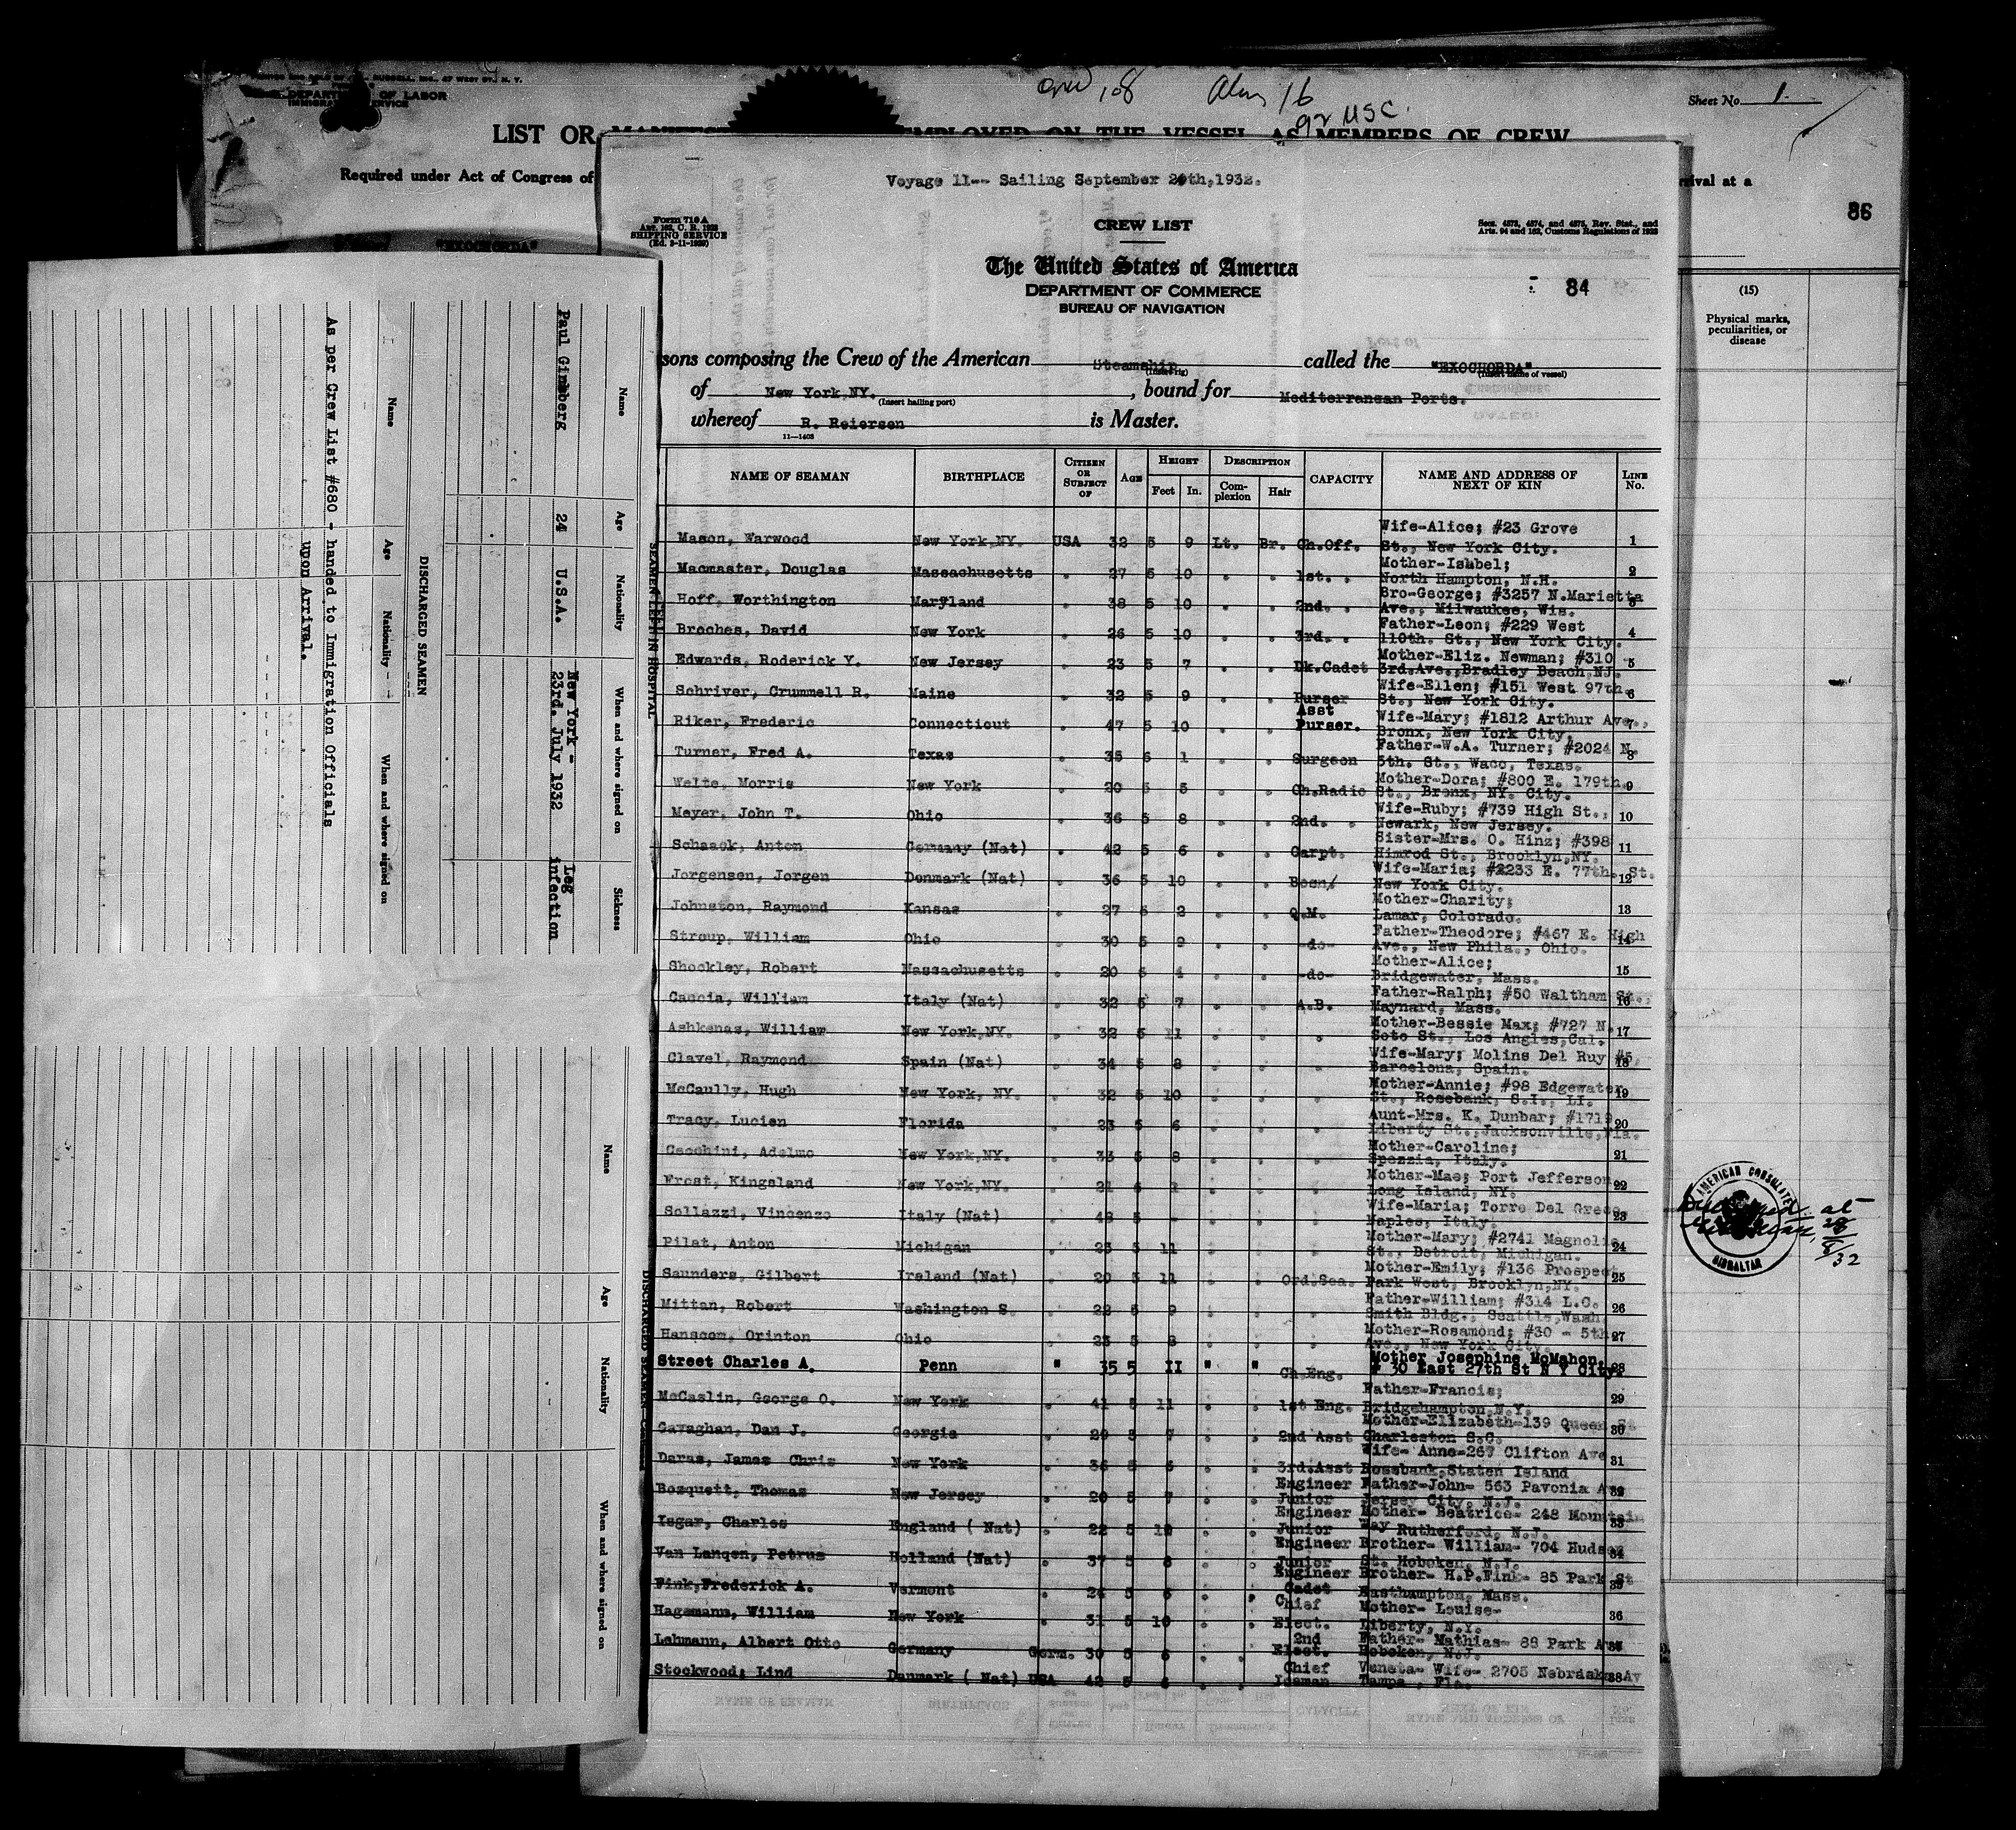 Crew 108 Alens 16
92 USC.
Sheet No. 1.
DEPARTMENT OF LABOR
IMMIGRATION SERVICE
LIST OR EMPLOYED ON THE VESSEL AS MEMBERS OF CREW
Required under Act of Congress of
arrival at a
86
(15)
Physical marks, peculiarities, or disease
"EXOCHORDA"
Voyage 11-- Sailing September 20th,1932.
Form 710 A
SHIPPING SERVICE
CREW LIST
Secs. 4573, 4574, and 4575, Rev. Stat., and
Arts. 94 and 162, Customs Regulations of 1923
The United States of America
DEPARTMENT OF COMMERCE
BUREAU OF NAVIGATION
84
sons composing the Crew of the American Steamship called the "EXOCHORDA"
(Insert rig) (Insert name of vessel)
of New York,NY. , bound for Mediterranean Ports.
(Insert hailing port)
whereof R. Reiersen is Master.
11—1403
NAME OF SEAMAN BIRTHPLACE CITIZEN OR SUBJECT OF AGE HEIGHT Feet In. DESCRIPTION Complexion Hair CAPACITY NAME AND ADDRESS OF NEXT OF KIN LINE No.
Mason, Harwood New York,NY. USA 32 5 9 Lt. Br. Ch.Off. Wife-Alice; #23 Grove St., New York City. 1
Macmaster, Douglas Massachusetts " 27 5 10 " " 1st. " Mother-Isabel; North Hampton, N.H. 2
Hoff, Worthington Maryland " 38 5 10 " " 2nd. " Bro-George; #3257 N.Marietta Ave., Milwaukee, Wis. 3
Broches, David New York " 26 5 10 " " 3rd. " Father-Leon; #229 West 110th. St., New York City. 4
Edwards, Roderick Y. New Jersey " 23 5 7 " " Dk.Cadet Mother-Eliz. Newman; #310 3rd.Ave.,Bradley Beach,NJ. 5
Schriver, Crummell R. Maine " 32 5 9 " " Purser Wife-Ellen; #151 West 97th. St., New York City. 6
Riker, Frederic Connecticut " 47 5 10 " " Asst Purser. Wife-Mary; #1812 Arthur Ave., Bronx, New York City. 7
Turner, Fred A. Texas " 35 6 1 " " Surgeon Father-W.A. Turner; #2024 N. 5th. St., Waco, Texas. 8
Welte, Morris New York " 20 5 5 " " Ch.Radio Mother-Dora; #800 E. 179th. St., Bronx, NY. City. 9
Meyer, John T. Ohio " 36 5 8 " " 2nd. " Wife-Ruby; #739 High St., Newark, New Jersey. 10
Schaack, Anton Germany (Nat) " 42 5 6 " " Carpt. Sister-Mrs. O. Hinz; #398 Himrod St., Brooklyn,NY. 11
Jorgensen, Jorgen Denmark (Nat) " 36 5 10 " " Bosn/ Wife-Maria; #2233 E. 77th. St. New York City. 12
Johnston, Raymond Kansas " 27 6 2 " " Q.M. Mother-Charity; Lamar, Colorado. 13
Stroup, William Ohio " 30 5 9 " " -do- Father-Theodore; #467 E. High Ave., New Phila., Ohio. 14
Shockley, Robert Massachusetts " 20 5 4 " " -do- Mother-Alice; Bridgewater, Mass. 15
Caccia, William Italy (Nat) " 32 5 7 " " A.B. Father-Ralph; #50 Waltham St., Maynard, Mass. 16
Ashkenas, William New York,NY. " 32 5 11 " " " Mother-Bessie Max; #727 N. Soto St., Los Angles,Cal. 17
Clavel, Raymond Spain (Nat) " 34 5 8 " " " Wife-Mary; Molins Del Ruy #5, Barcelona, Spain. 18
McCaully, Hugh New York, NY. " 32 5 10 " " " Mother-Annie; #98 Edgewater St., Rosebank, S.I., LI. 19
Tracy, Lucien Florida " 23 5 6 " " " Aunt-Mrs. K. Dunbar; #1719 Liberty St.,Jacksonville,Fla. 20
Cecchini, Adelmo New York,NY. " 33 5 8 " " " Mother-Caroline; Spezzia, Italy. 21
Frost, Kingsland New York,NY. " 21 6 1 " " " Mother-Mae; Port Jefferson Long Island, NY. 22
Sollazzi, Vincenzo Italy (Nat) " 48 5 - " " " Wife-Maria; Torre Del Greco Naples, Italy. 23
Pilat, Anton Michigan " 23 5 11 " " " Mother-Mary; #2741 Magnolia St., Detroit, Michigan. 24
Saunders, Gilbert Ireland (Nat) " 20 5 11 " " Ord.Sea. Mother-Emily; #136 Prospect Park West, Brooklyn,NY. 25
Mittan, Robert Washington S. " 22 5 9 " " " Father-William; #314 L.C. Smith Bldg., Seattle,Wash. 26
Hanscom, Orinton Ohio " 23 5 8 " " " Mother-Rosamond; #30 - 5th Ave., New York City. 27
Street Charles A. Penn " 35 5 II " " Ch.Eng. Mother Josephine McMahon, # 30 East 27th St N Y City. 28
McCaslin, George O. New York " 41 5 11 " " 1st Eng. Father-Francis; Bridgehampton,N.Y. 29
Gavaghan, Dan J. Georgia " 29 5 7 " " 2nd Asst Mother-Elizabeth-139 Queen St Charleston S.C. 30
Daras, James Chris New York " 36 5 6 " " 3rd.Asst Engineer Wife- Anne-267 Clifton Ave Rosebank,Staten Island 31
Bozquett, Thomas New Jersey " 20 5 7 " " Junior Engineer Father-John- 563 Pavonia Ave Jersey City, N.J. 32
Isgar, Charles England ( Nat) " 22 5 10 " " Junior Engineer Mother- Beatrice- 248 Mountain Way Rutherford, N.J. 33
Van Langen, Petrus Holland (Nat) " 37 5 8 " " Junior Engineer Brother- William- 704 Hudson St. Hoboken, N.J. 34
Fink,Frederick A. Vermont " 24 5 6 " " Cadet Brother- H.P.Fink- 85 Park St Easthampton, Mass. 35
Hagemann, William New York " 31 5 10 " " Chief Elect. Mother- Louise- Liberty, N.Y. 36
Lehmann, Albert Otto Germany Germ. 30 5 8 " " 2nd Elect. Father- Mathias- 88 Park Ave Hoboken, N.J. 37
Stockwood; Lind Danmark ( Nat) USA 42 5 8 " " Chief Iceman Veneta- Wife- 2705 Nebraska Av Tampa , Fla. 38
SEAMEN LEFT IN HOSPITAL
Name Age Nationality When and where signed on Sickness
Paul Gimsberg 24 U.S.A. New York - 23rd. July 1932 Leg infection
DISCHARGED SEAMEN
Name Age Nationality When and where signed on
As per Crew List #680 - handed to Immigration Officials
upon Arrival.
DISCHARGED SEAMEN
Name Age Nationality When and where signed on
AMERICAN CONSULATE
GIBRALTAR
at
32